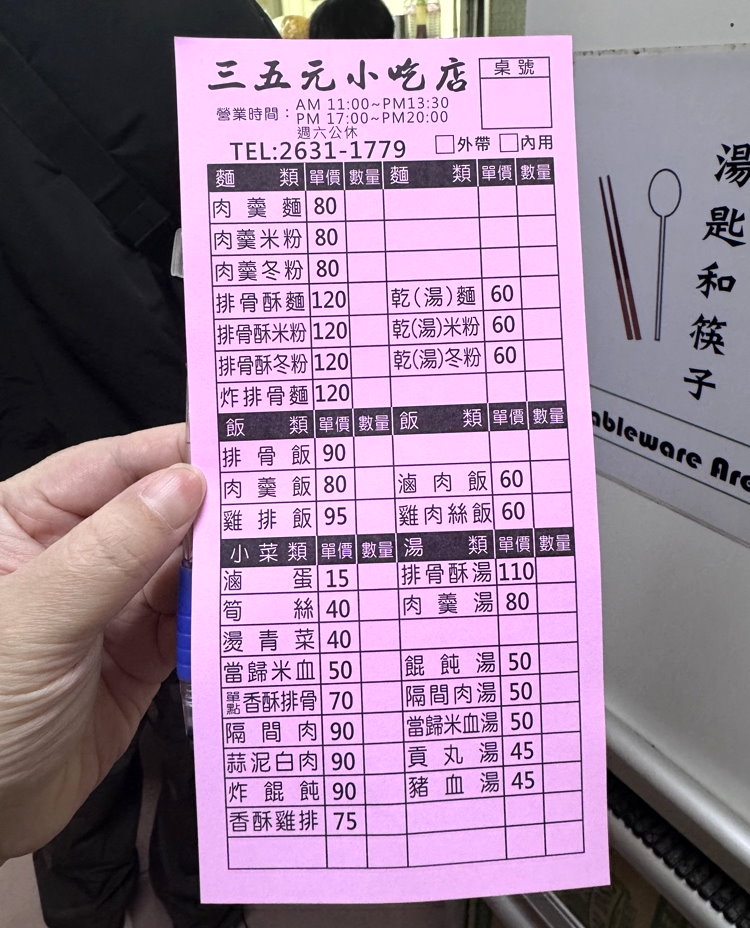 三五元小吃店
桌號
營業時間：AM 11:00~PM13:30
PM 17:00~PM20:00
週六公休
TEL:2631-1779 □外帶 □內用
麵類 單價 數量 麵類 單價 數量
肉羹麵 80
肉羹米粉 80
肉羹冬粉 80
排骨酥麵 120 乾(湯)麵 60
排骨酥米粉 120 乾(湯)米粉 60
排骨酥冬粉 120 乾(湯)冬粉 60
炸排骨麵 120
飯類 單價 數量 飯類 單價 數量
排骨飯 90
肉羹飯 80 滷肉飯 60
雞排飯 95 雞肉絲飯 60
小菜類 單價 數量 湯類 單價 數量
滷蛋 15 排骨酥湯 110
筍絲 40 肉羹湯 80
燙青菜 40
當歸米血 50 餛飩湯 50
單點香酥排骨 70 隔間肉湯 50
隔間肉 90 當歸米血湯 50
蒜泥白肉 90 貢丸湯 45
炸餛飩 90 豬血湯 45
香酥雞排 75
湯匙和筷子
ableware Are